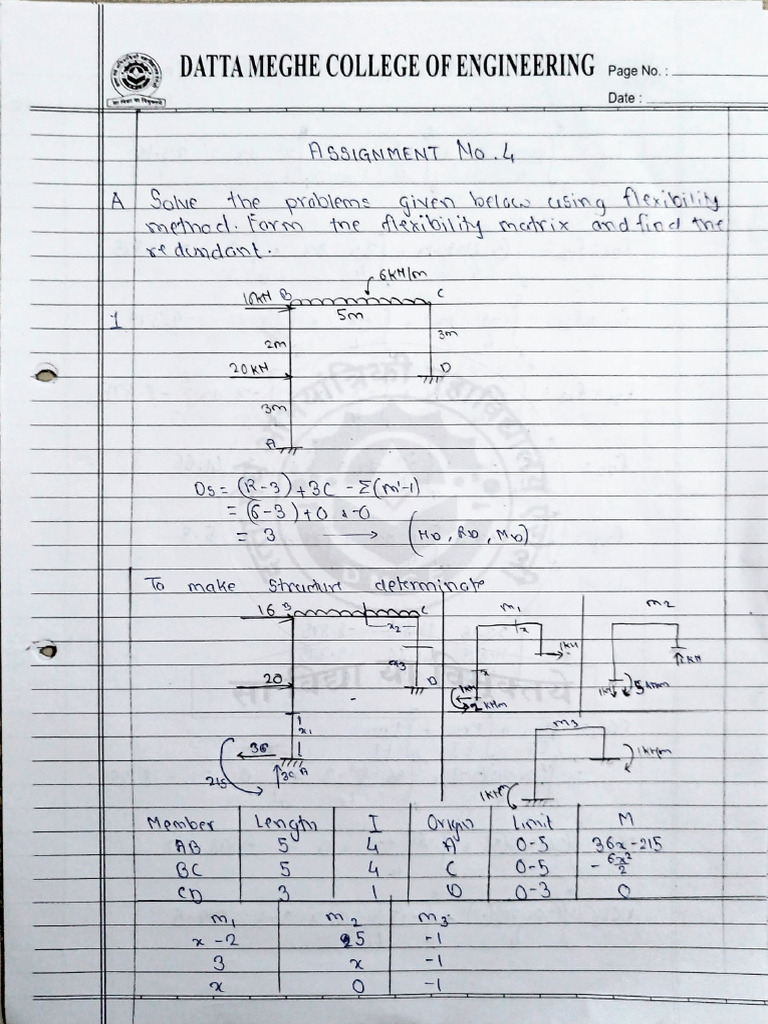 DATTA MEGHE COLLEGE OF ENGINEERING
Page No. :
Date :
ASSIGNMENT No. 4
A Solve the problems given below using flexibility
method. Form the flexibility matrix and find the
redundant.
1
6kN/m
B
C
5m
2m
3m
20KN
D
3m
A
Ds = (R-3) + 3C - Σ(m'-1)
= (6-3) + 0
= 3 → (HD, RD, MD)
To make structure determinate
16 B C
x2
x3
20
D
x1
36
215
A
m1
x
1KN
x
m2
1KN
m3
1KNm
Member Length I Origin Limit M
AB 5 4 A 0-5 36x-215
BC 5 4 C 0-5 -6x²/2
CD 3 1 D 0-3 0
m1 m2 m3
x-2 5 -1
3 x -1
x 0 -1